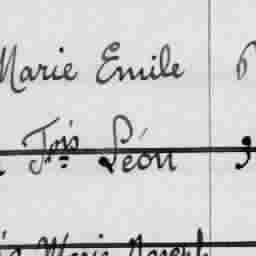 Marie Emile
Fois Léon
Marie Joseph